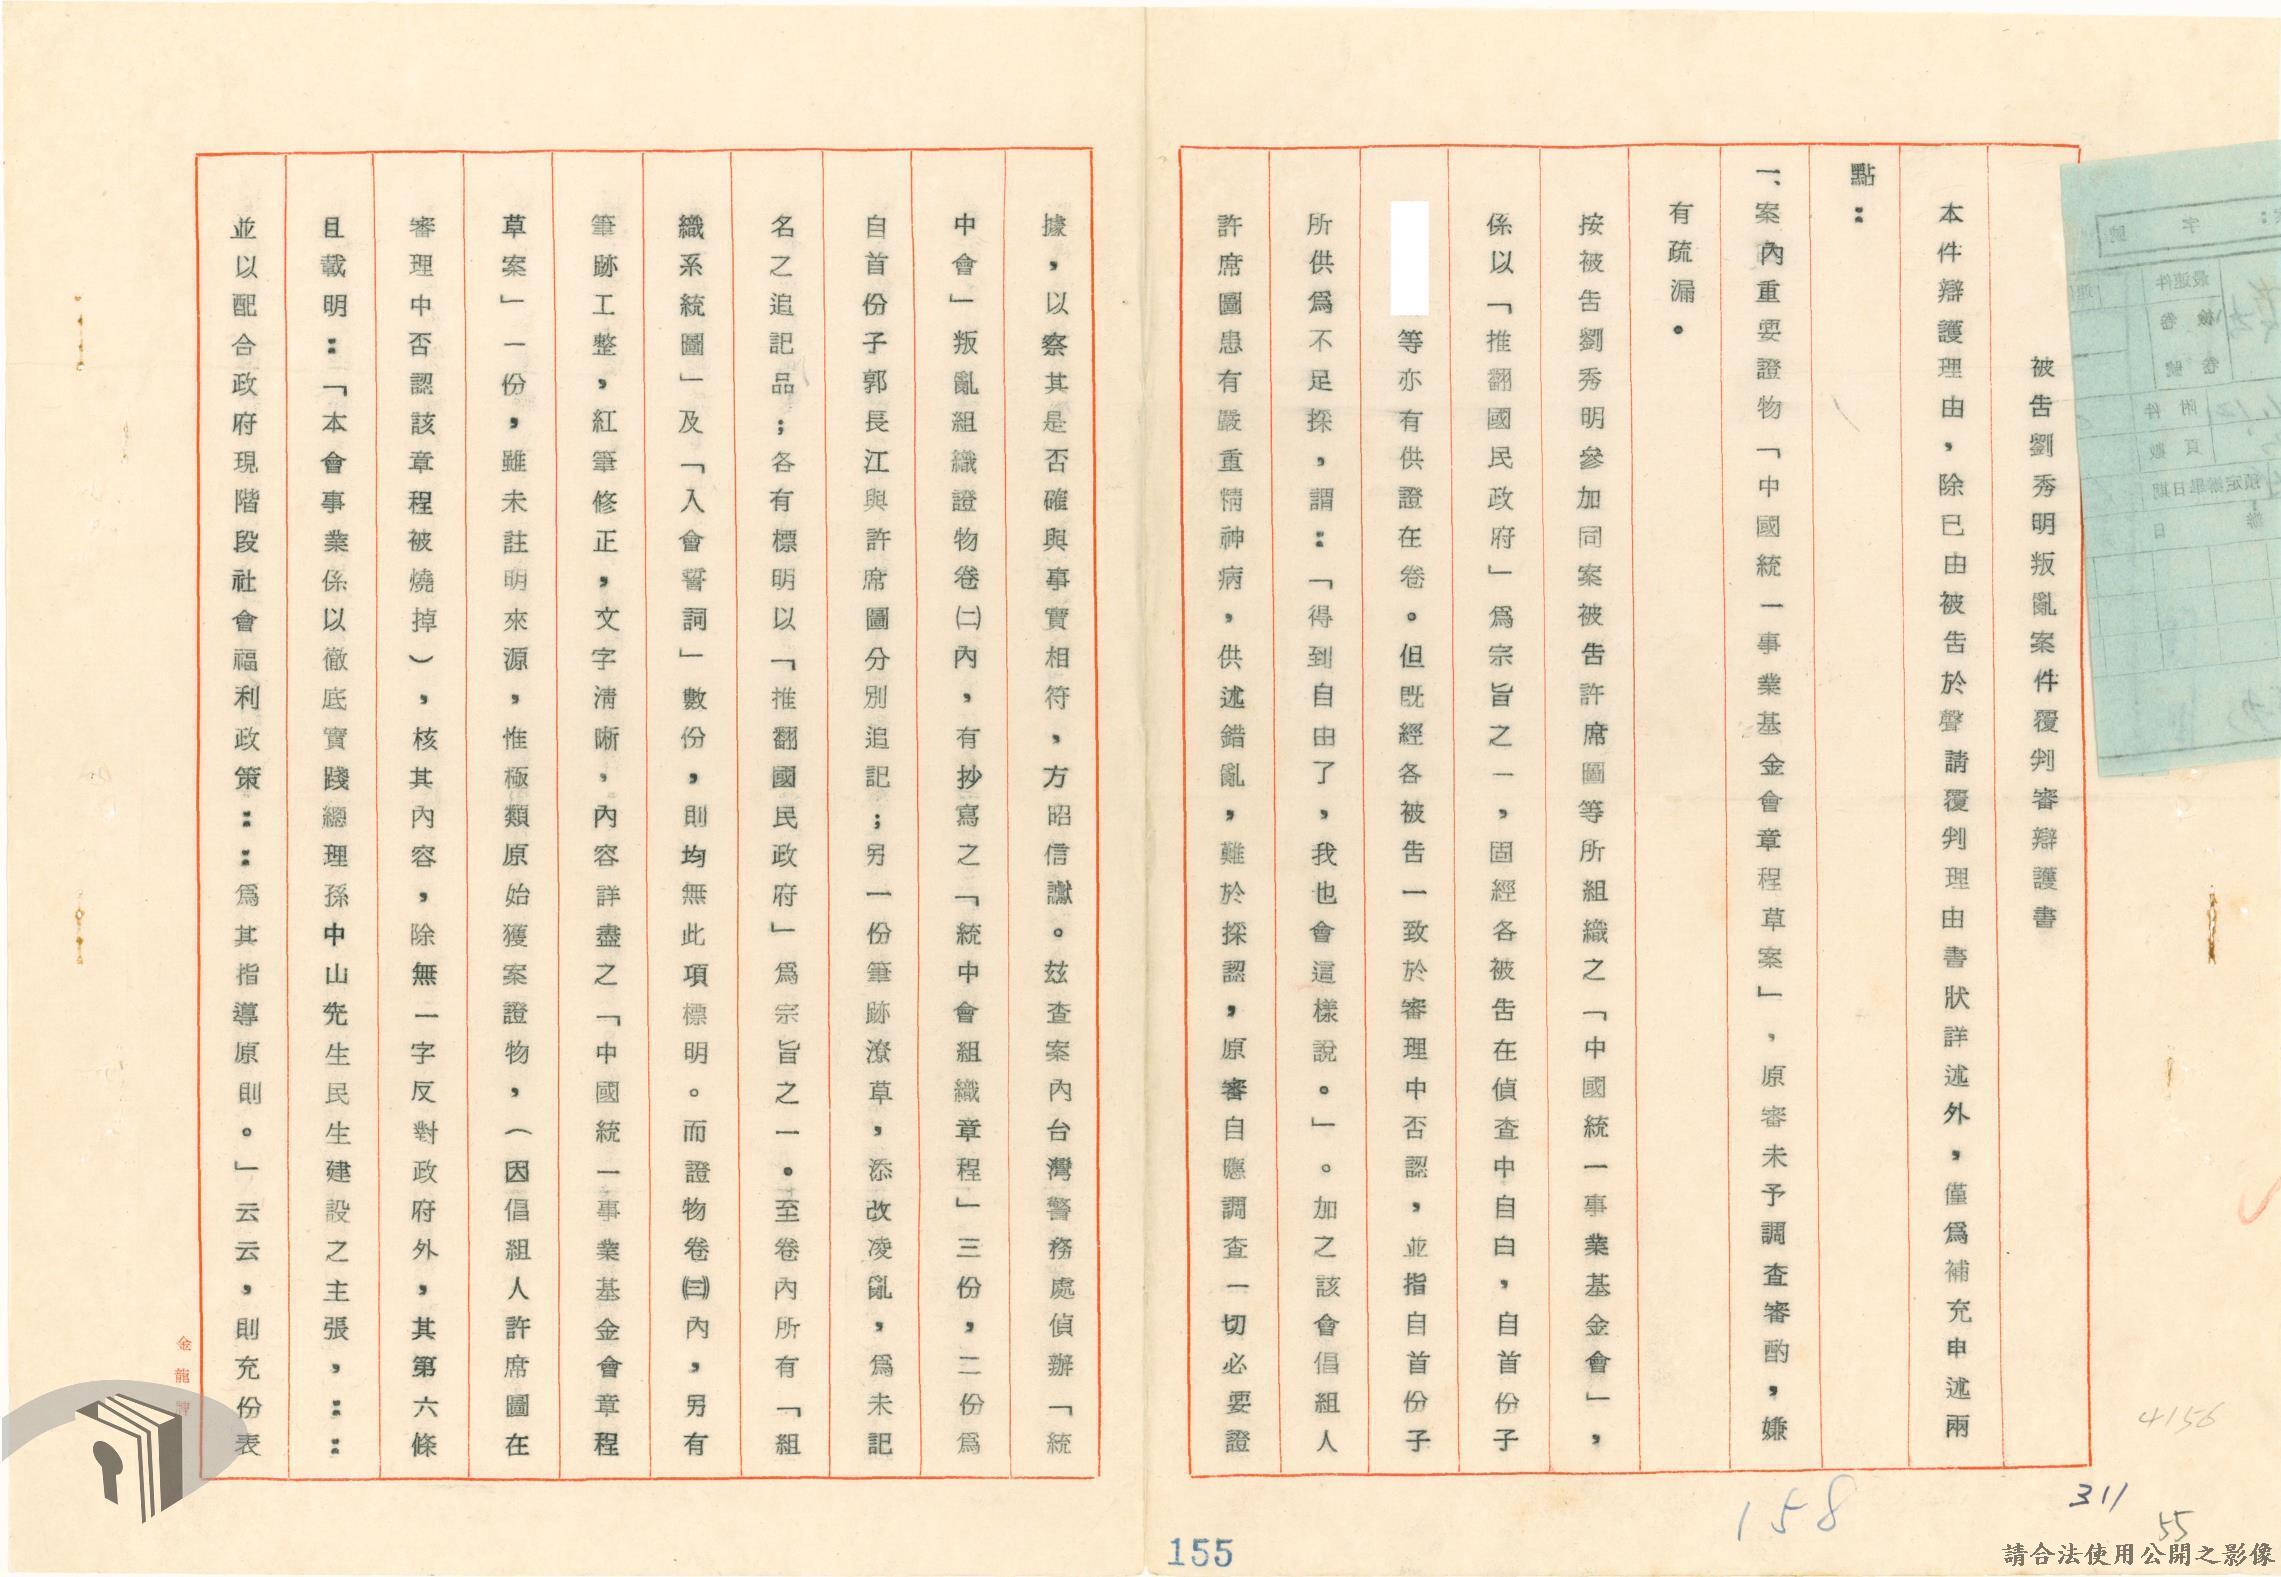 被告劉秀明叛亂案件覆判審辯護書
本件辯護理由，除已由被告於聲請覆判理由書狀詳述外，僅爲補充申述兩
點：
一、案內重要證物「中國統一事業基金會章程草案」，原審未予調查審酌，嫌
有疏漏。
按被告劉秀明參加同案被告許席圖等所組織之「中國統一事業基金會」，
係以「推翻國民政府」爲宗旨之一，固經各被告在偵查中自白，自首份子
等亦有供證在卷。但既經各被告一致於審理中否認，並指自首份子
所供爲不足採，謂：「得到自由了，我也會這樣說。」。加之該會倡組人
許席圖患有嚴重精神病，供述錯亂，難於採認，原審自應調查一切必要證
據，以察其是否確與事實相符，方昭信讞。玆查案內台灣警務處偵辦「統
中會」叛亂組織證物卷㈡內，有抄寫之「統中會組織章程」三份，二份爲
自首份子郭長江與許席圖分別追記；另一份筆跡潦草，添改凌亂，爲未記
名之追記品；各有標明以「推翻國民政府」爲宗旨之一。至卷內所有「組
織系統圖」及「入會誓詞」數份，則均無此項標明。而證物卷㈢內，另有
筆跡工整，紅筆修正，文字清晰，內容詳盡之「中國統一事業基金會章程
草案」一份，雖未註明來源，惟極類原始獲案證物，（因倡組人許席圖在
審理中否認該章程被燒掉），核其內容，除無一字反對政府外，其第六條
且載明：「本會事業係以徹底實踐總理孫中山先生民生建設之主張，：：
並以配合政府現階段社會福利政策：：爲其指導原則。」云云，則充份表
金龍牌
最速件
檢卷
卷號
附件
頁數
預定辦畢日期
字
號
158
155
311
55
4156
請合法使用公開之影像